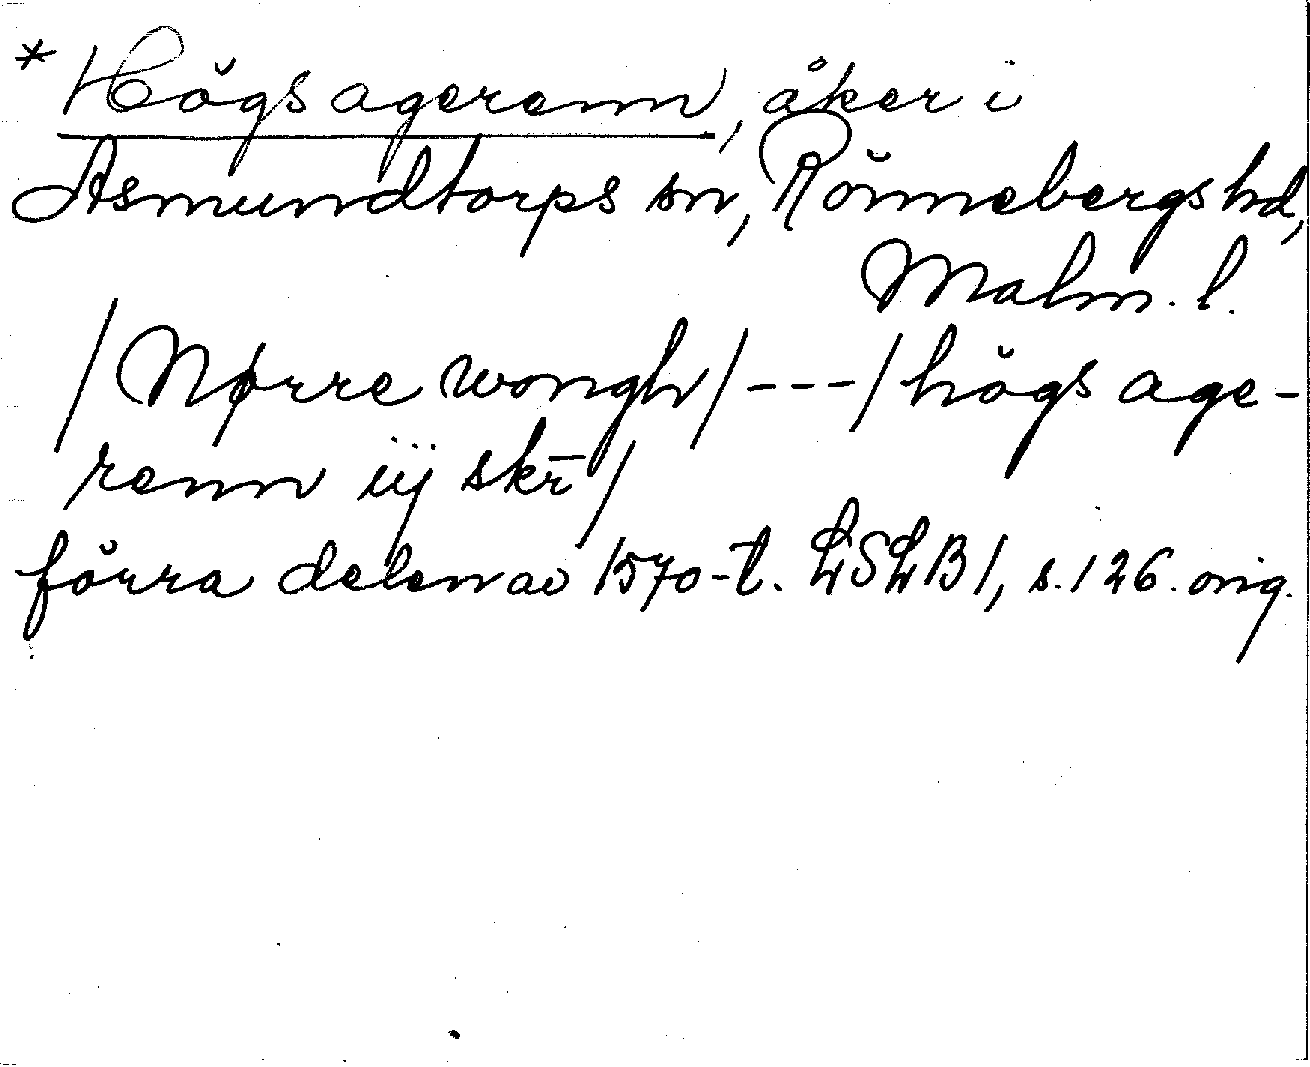 * Högs agerenn, åker i
Asmundtorps sn, Rönnebergs hd,
Malm. l.
/Nørre wongh/---/högs age-
renn iij skr̄/
förra delen av 1570-t. LSLB1, s. 126. orig.